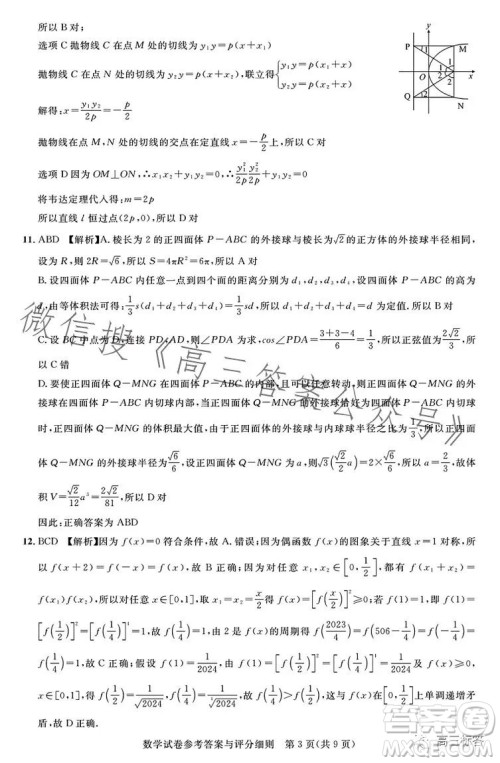 所以 B 对;
选项 C 抛物线 C 在点 M 处的切线为 y₁y=p(x+x₁)
抛物线 C 在点 N 处的切线为 y₂y=p(x+x₂),联立得{y₁y=p(x+x₁) y₂y=p(x+x₂)
解得:x=y₁y₂/2p=-p/2
抛物线在点 M,N 处的切线的交点在定直线 x=-p/2 上,所以 C 对
选项 D 因为 OM⊥ON,∴x₁x₂+y₁y₂=0,∴y₁²/2p·y₂²/2p+y₁y₂=0
将韦达定理代入得:m=2p
所以直线 l 恒过点(2p,0),所以 D 对
y
P
M
1
1
O
F
x
2
2
Q
N
11. ABD 【解析】A.棱长为 2 的正四面体 P-ABC 的外接球与棱长为√2的正方体的外接球半径相同,
设为 R,则 2R=√6,所以 S=4πR²=6π,所以 A 对
B.设四面体 P-ABC 内任意一点到四个面的距离分别为 d₁,d₂,d₃,d₄,设四面体 P-ABC 的高为
d,由等体积法可得:1/3s(d₁+d₂+d₃+d₄)=1/3sd,所以 d₁+d₂+d₃+d₄=d 为定值.所以 B 对
C.设 BC 中点为 D,连接 PD、AD,则∠PDA 为所求,cos∠PDA=(3+3-4)/6=1/3,所以正弦值为2√2/3,
所以 C 错
D.要使正四面体 Q-MNG 在四面体 P-ABC 的内部,且可以任意转动,则正四面体 Q-MNG 的外
接球在四面体 P-ABC 内切球内部,当正四面体 Q-MNG 的外接球恰好为四面体 P-ABC 内切球
时,正四面体 Q-MNG 的体积最大值,由于正四面体的外接球与内球球半径之比为1/3,所以四面
体 Q-MNG 的外接球半径为√6/6,设正四面体 Q-MNG 为 a,则3(√6/6 a)=2×√6/6,所以 a=2/3,故体
积 V=√2/12a³=2√2/81,所以 D 对
因此:正确答案为 ABD
12. BCD 【解析】因为 f(x)=0 符合条件,故 A.错误;因为偶函数 f(x)的图象关于直线 x=1 对称,所
以 f(x+2)=f(-x)=f(x),故 B 正确;因为对任意 x₁,x₂∈[0,1/2],都有 f(x₁+x₂)=
f(x₁)f(x₂),所以对任意 x∈[0,1],取 x₁=x₂=x/2 得 f(x)=[f(x/2)]²≥0;所以 f(1)=
[f(1/2)]²=[f(1/4)]⁴=1/2024,故 f(1/4)=1/⁴√2024,由 2 是 f(x)的周期得 f(2023/4)=f(506-1/4)=
f(-1/4)=f(1/4)=1/⁴√2024,故 C 正确;f(1)=[f(1/2)]²=[f(1/4)]⁴=1/2024,假设 f(x)⩾0,
x∈[0,1],所以 f(1/2)=1/√2024,f(1/4)=1/⁴√2024,故 D 正确.
数学试卷参考答案与评分细则 第 3 页(共 9 页)
微信搜《高三答案公众号》
高三标答
答案圈